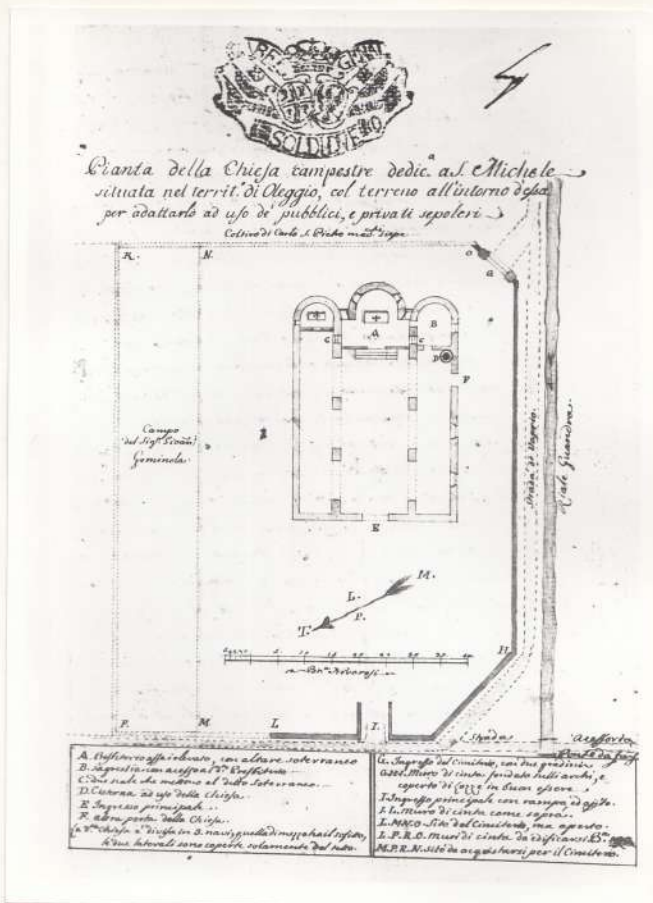 SOLDI
Pianta della Chiesa campestre dedic.a a S. Michele
situata nel territ.o di Oleggio, col terreno all'intorno d'essa
per adattarlo ad uso de' pubblici, e privati sepolcri
Coltivo di Carlo
R.
N.
O
G
A
B
C
C
D
F
Campo
del Sig.r
Geminola
Strada di Oleggio
Riale Guandra
E
M.
L.
P.
T.
Novaresi
H
P.
M
L
I.
Strada
A. Presbiterio assai elevato, con altare soterraneo
B. Sagrestia con accesso al Presbiterio
C. due scale che menano al detto Soterraneo
D. Cisterna ad uso della Chiesa
E. Ingresso principale
F. altra porta della Chiesa
Chiesa è divisa in 3. navi, quella di mezzo ha il soffitto,
le due laterali sono coperte solamente del tetto.
G. Ingresso del Cimiterio, con due gradini
Muro di cinta fondato sulli archi, e
coperto di in buon essere
I. Ingresso principale con rampa
I. L. Muro di cinta come sopra
Sito del Cimiterio, ma aperto.
L. P. R. O. Muri di cinta da edificarsi
M. P. R. N. Sito da acquistarsi per il Cimitero.